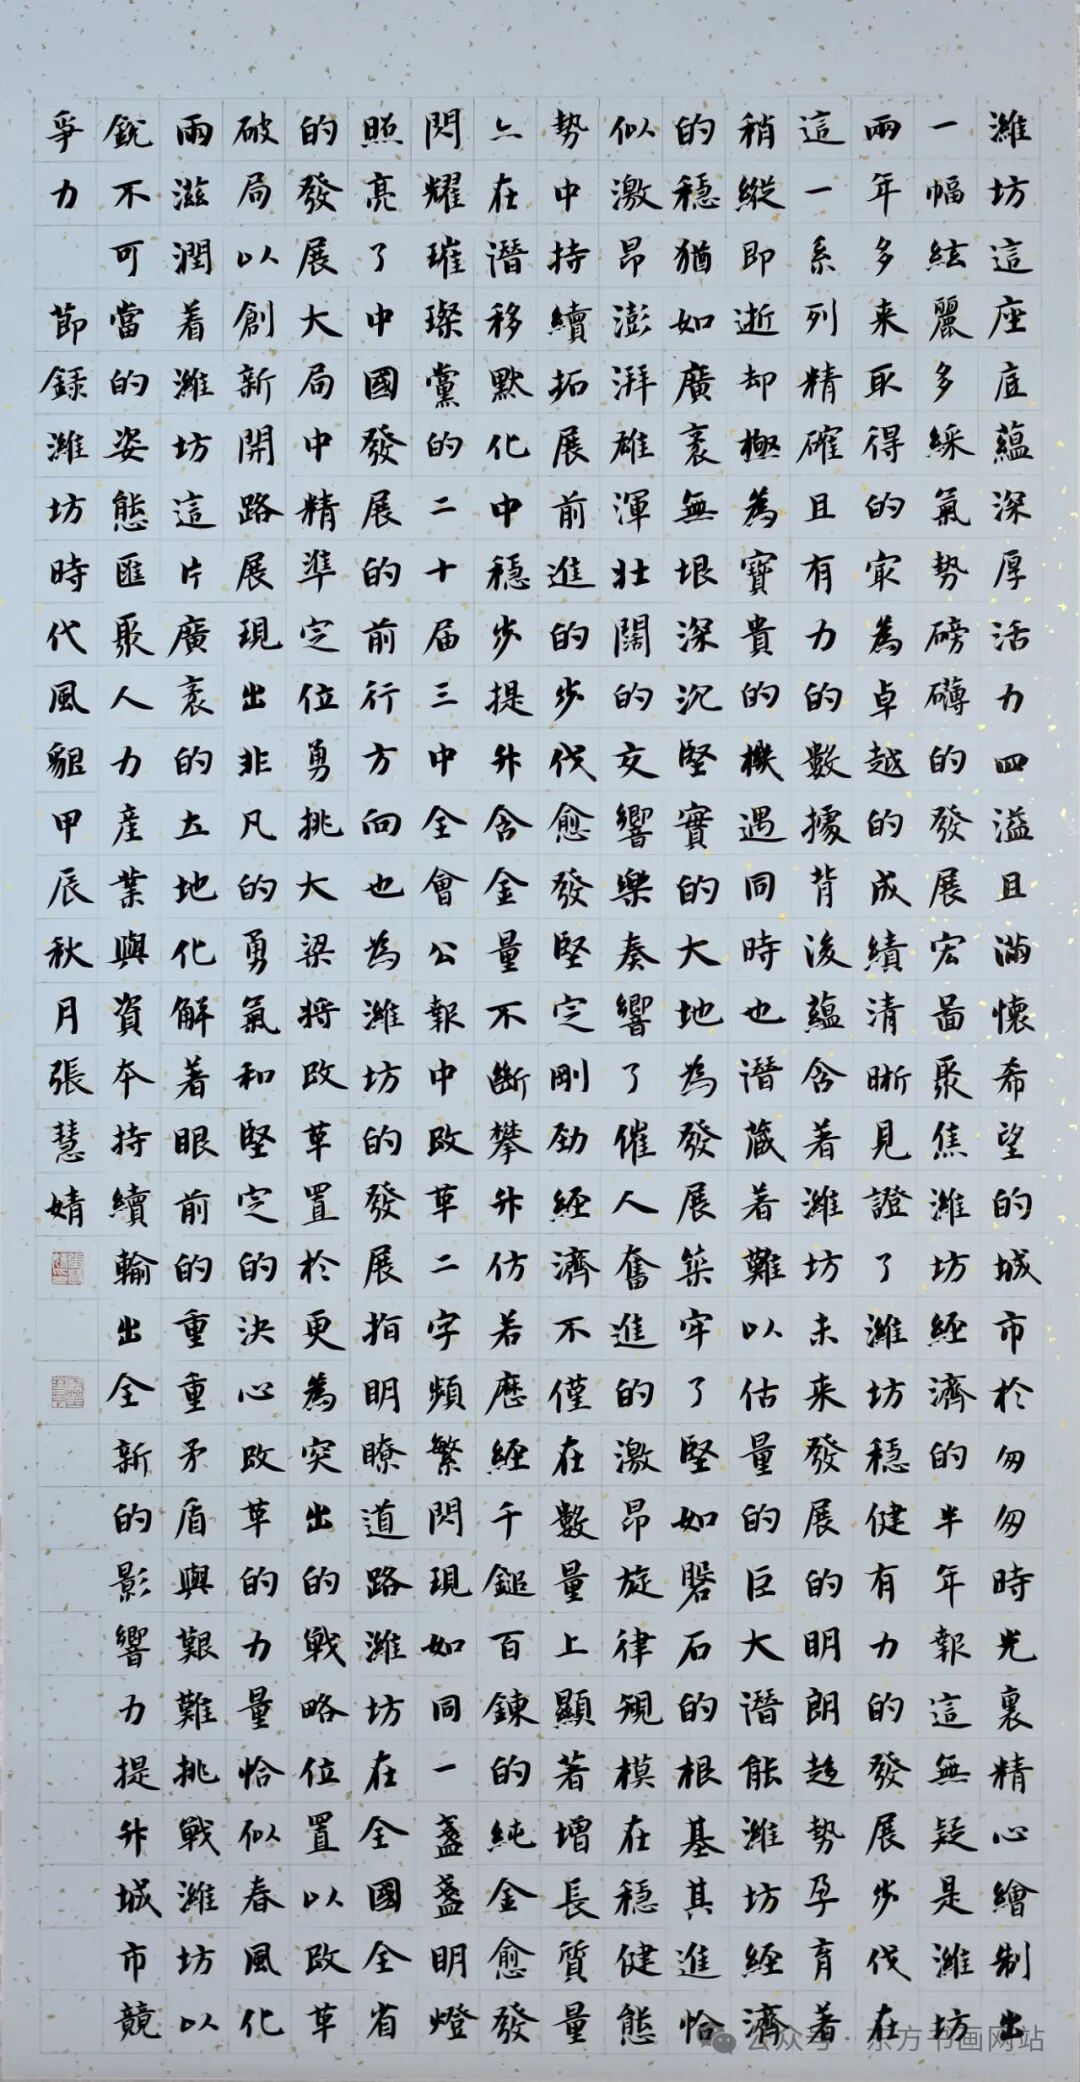 濰坊這座底蘊深厚活力四溢且滿懷希望的城市於匆匆時光裏精心繪制出
一幅絃麗多綵氣勢磅礴的發展宏圖聚焦濰坊經濟的半年報這無疑是濰坊
兩年多来取得的宼為卓越的成績清晰見證了濰坊穩健有力的發展步伐在
這一系列精確且有力的數據背後蘊含着濰坊未来發展的明朗趨勢孕育着
稍縱即逝却極為寶貴的機遇同時也潛藏著難以估量的巨大潛能濰坊經濟
的穩猶如廣袤無垠深沉堅實的大地為發展築牢了堅如磐石的根基其進恰
似激昂澎湃雄渾壯闊的交響樂奏響了催人奮進的激昂旋律規模在穩健態
勢中持續拓展前進的步伐愈發堅定剛劲經濟不僅在數量上顯著增長質量
上在潛移默化中穩步提升含金量不斷攀升仿若歷經千鎚百鍊的純金愈發
閃耀璀璨黨的二十届三中全會公報中改革二字頻繁閃現如同一盞盞明燈
照亮了中國發展的前行方向也為濰坊的發展指明瞭道路濰坊在全國全省
的發展大局中精準定位勇挑大梁將改革置於更為突出的戰略位置以改革
破局以創新開路展現出非凡的勇氣和堅定的決心改革的力量恰似春風化
雨滋潤着濰坊這片廣袤的土地化解着眼前的重重矛盾與艱難挑戰濰坊以
銳不可當的姿態匯聚人力產業與資本持續輸出全新的影響力提升城市競
爭力 節録濰坊時代風貌甲辰秋月張慧婧
公众号·东方书画网站